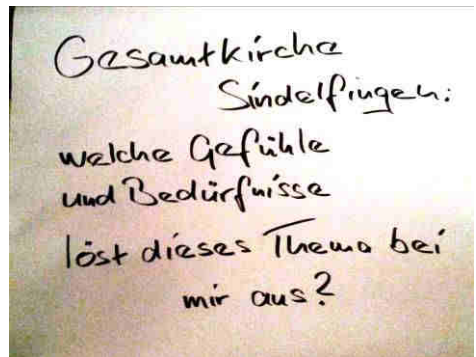 Gesamtkirche
Sindelfingen:
welche Gefühle
und Bedürfnisse
löst dieses Thema bei
mir aus?